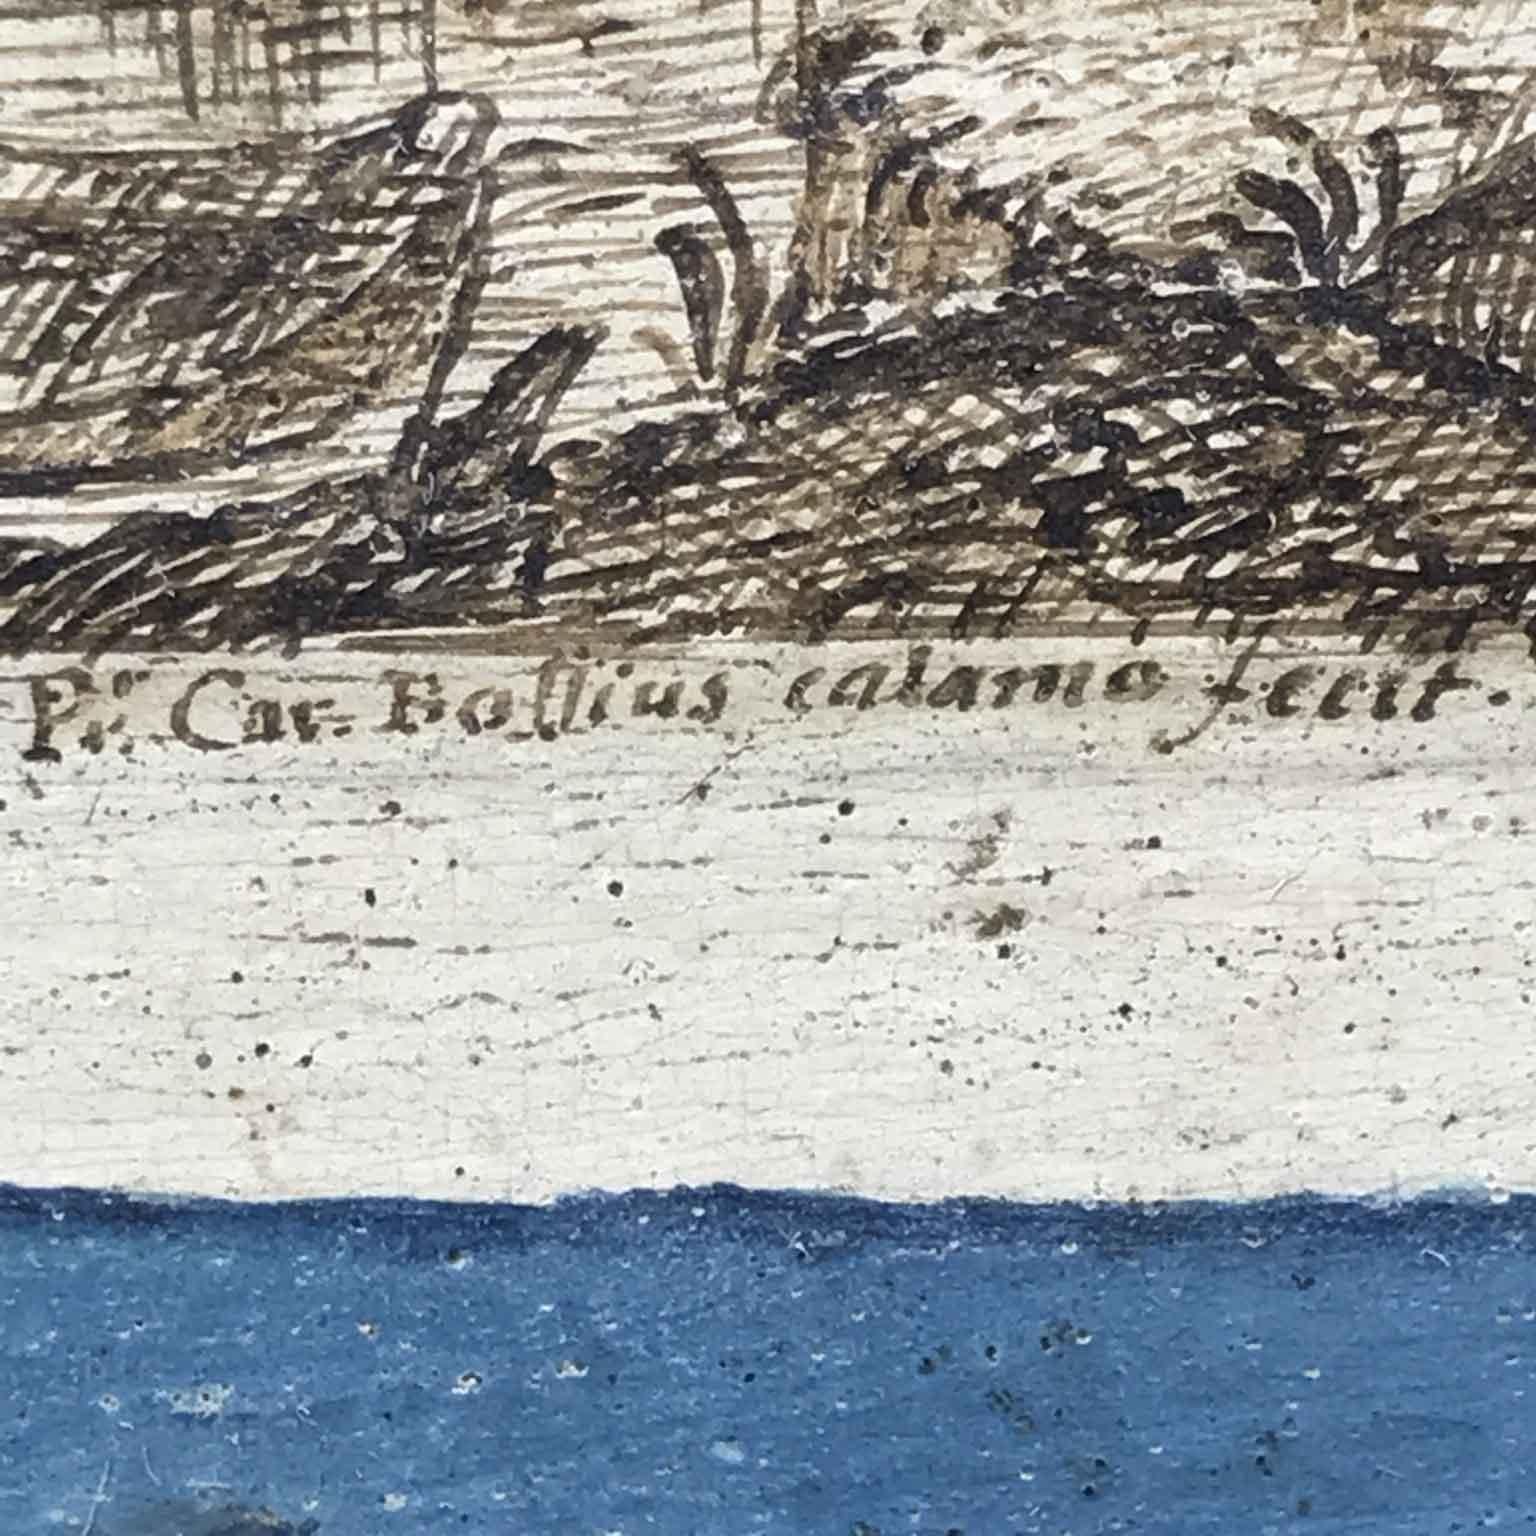 P.r Car. Bossius calamo fecit.